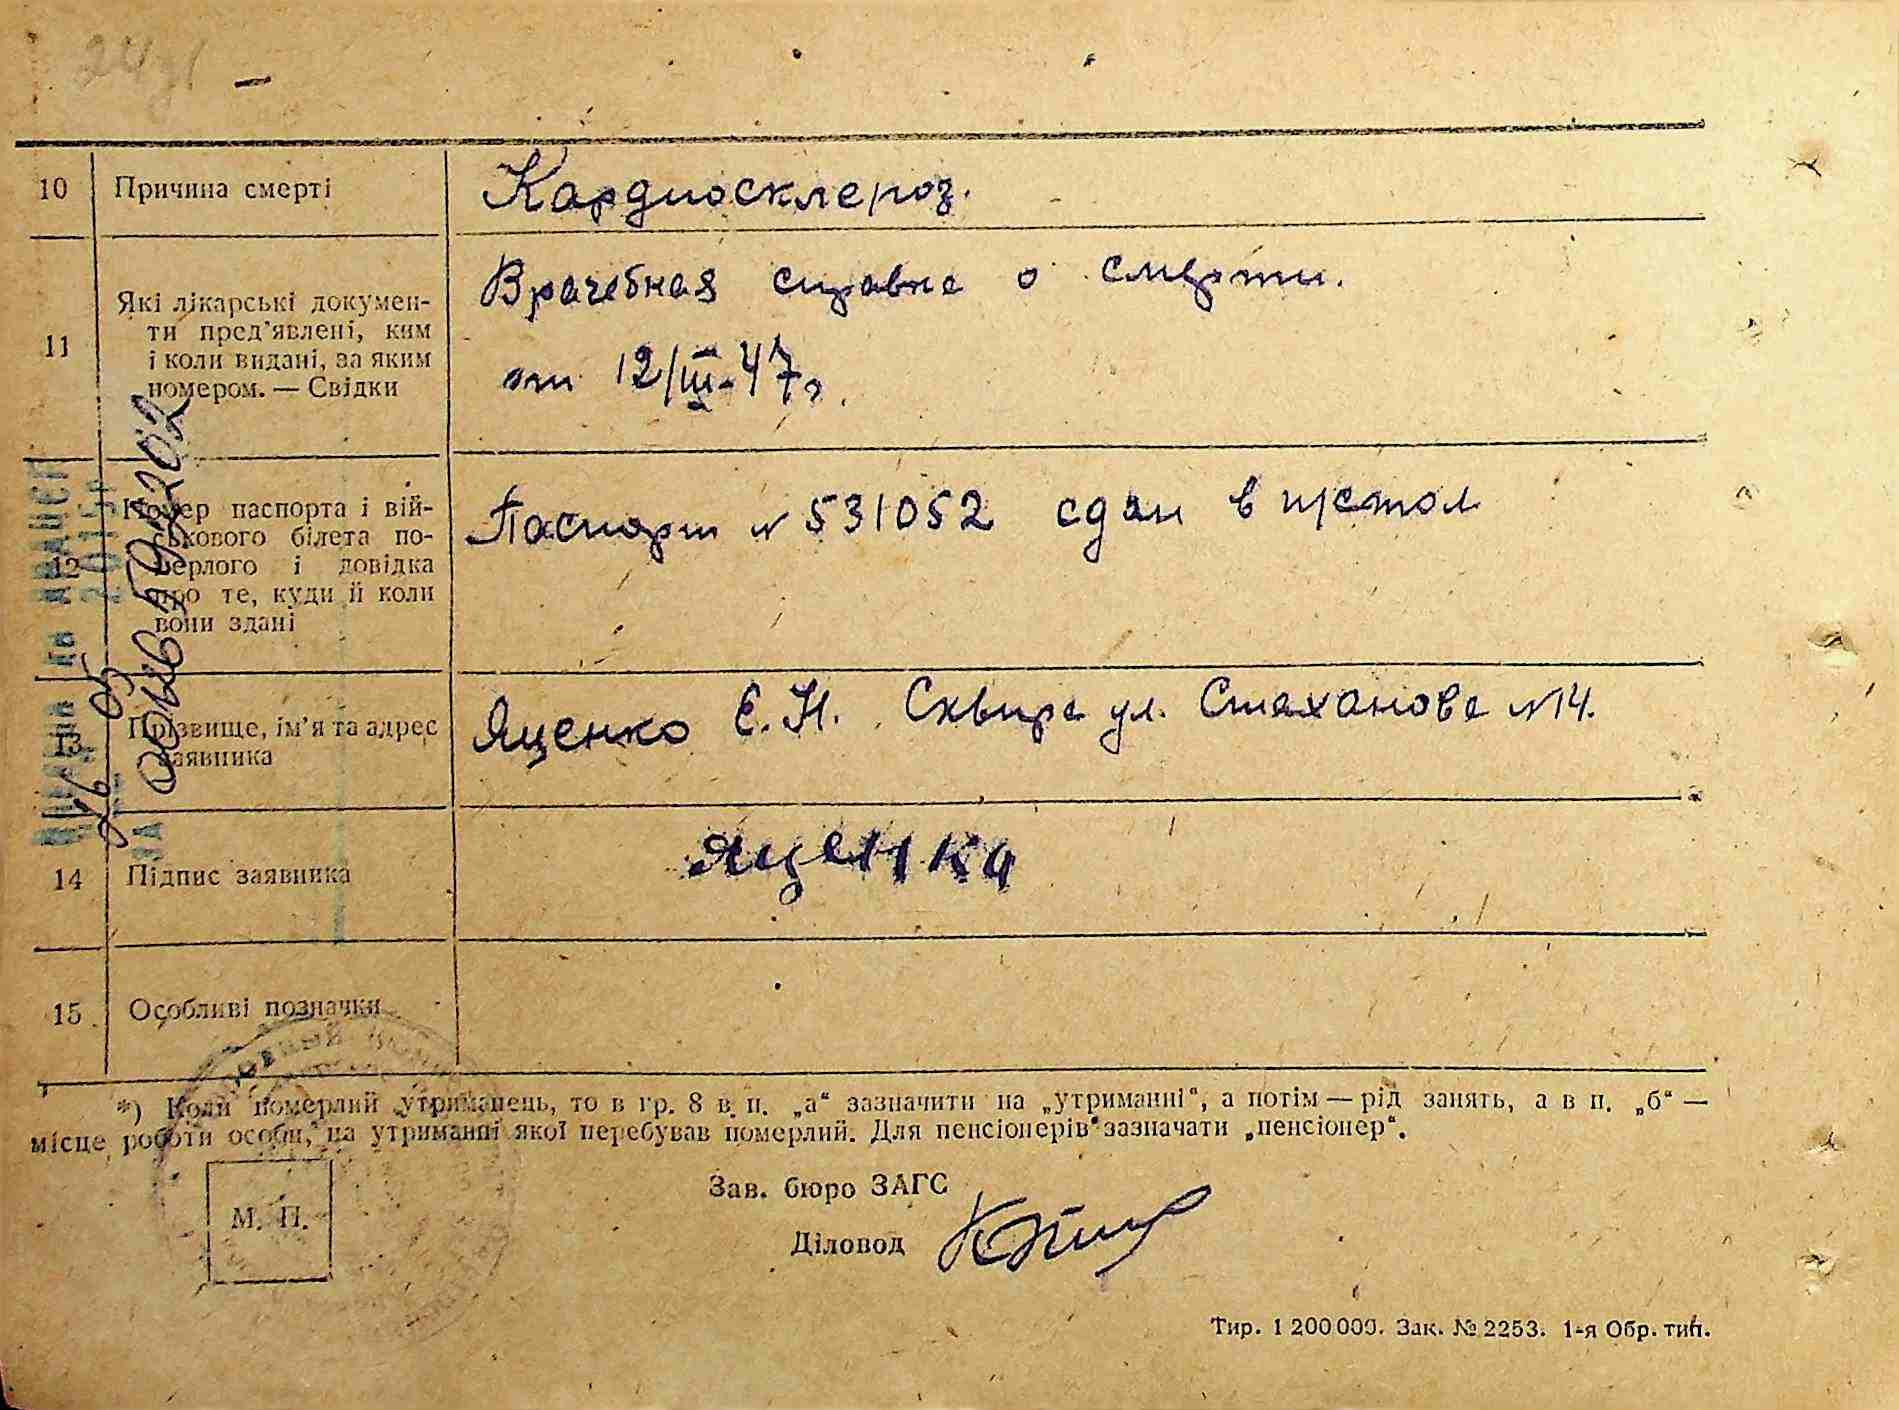 10 Причина смерті Кардиосклероз.
11 Які лікарські докумен- Врачебная справка о смерти.
ти пред'явлені, ким
і коли видані, за яким от 12/III-47г.
номером. — Свідки
12 Номер паспорта і вій- Паспорт № 531052 сдан в п/стол
ськового білета по-
мерлого і довідка
про те, куди й коли
вони здані
13 Прізвище, ім'я та адрес Яценко Е. Н. Сквира ул. Стаханова № 14.
заявника
14 Підпис заявника Яценка
15 Особливі позначки
*) Коли померлий утриманець, то в гр. 8 в п. „а“ зазначити на „утриманні“, а потім — рід занять, а в п. „б“ —
місце роботи особи, на утриманні якої перебував померлий. Для пенсіонерів зазначати „пенсіонер“.
М. П.
Зав. бюро ЗАГС
Діловод
Тир. 1 200 000. Зак. № 2253. 1-я Обр. тип.